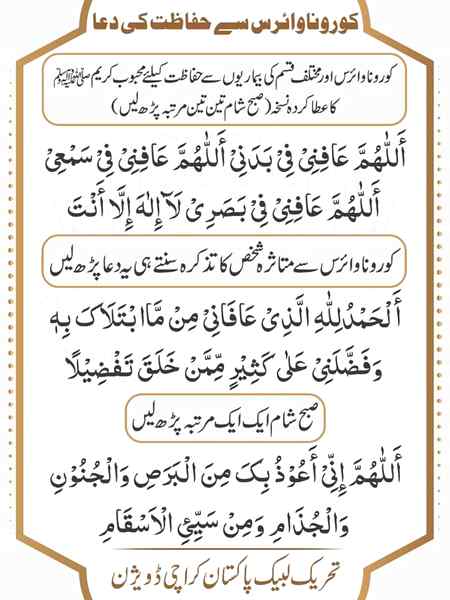 کورونا وائرس سے حفاظت کی دعا
کورونا وائرس اور مختلف قسم کی بیماریوں سے حفاظت کیلئے محبوب کریم ﷺ
کا عطا کردہ نسخہ (صبح شام تین تین مرتبہ پڑھ لیں)
أَللّٰهُمَّ عَافِنِیْ فِیْ بَدَنِیْ أَللّٰهُمَّ عَافِنِیْ فِیْ سَمْعِیْ
أَللّٰهُمَّ عَافِنِیْ فِیْ بَصَرِیْ لَآ إِلٰهَ إِلَّا أَنْتَ
کورونا وائرس سے متاثرہ شخص کا تذکرہ سنتے ہی یہ دعا پڑھ لیں
أَلْحَمْدُلِلّٰهِ الَّذِیْ عَافَانِیْ مِنْ مَّا ابْتَلَاکَ بِهٖ
وَفَضَّلَنِیْ عَلٰی کَثِیْرٍ مِّمَّنْ خَلَقَ تَفْضِیْلًا
صبح شام ایک ایک مرتبہ پڑھ لیں
أَللّٰهُمَّ إِنِّیْ أَعُوْذُ بِکَ مِنَ الْبَرَصِ وَالْجُنُوْنِ
وَالْجُذَامِ وَمِنْ سَیِّئِ الْاَسْقَامِ
تحریک لبیک پاکستان کراچی ڈویژن